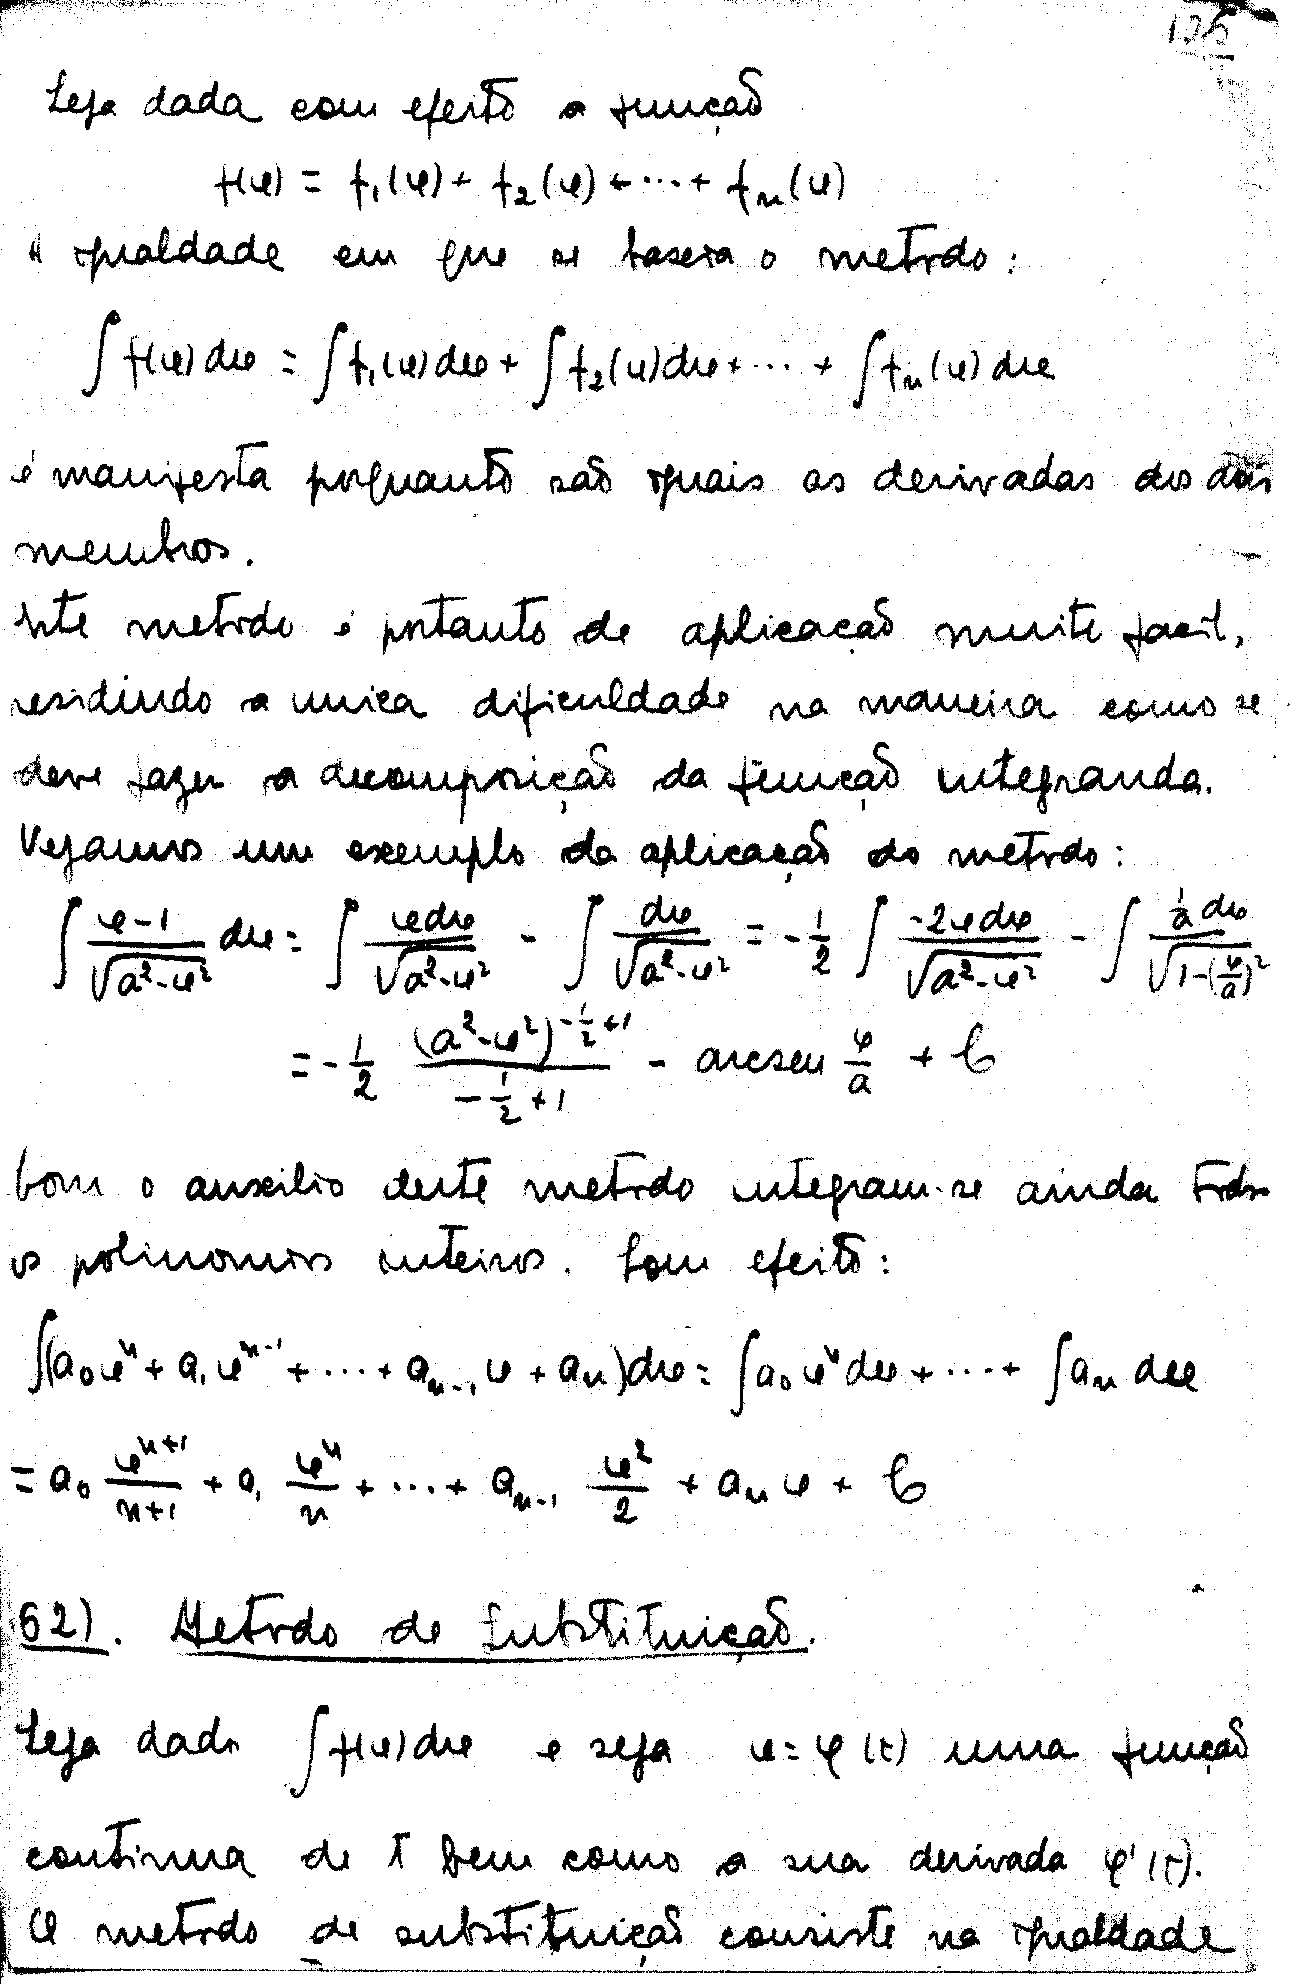 125
Seja dada com efeito a função
f(x) = f₁(x) + f₂(x) + ··· + fₙ(x)
A igualdade em que se baseia o metodo:
∫ f(x) dx = ∫ f₁(x) dx + ∫ f₂(x) dx + ··· + ∫ fₙ(x) dx
é manifesta porquanto são iguais as derivadas dos dois
membros.
Este metodo é portanto de aplicação muito facil,
residindo a unica dificuldade na maneira como se
deve fazer a decomposição da função integranda.
Vejamos um exemplo da aplicação do metodo:
∫ (x-1)/√(a²-x²) dx = ∫ xdx/√(a²-x²) - ∫ dx/√(a²-x²) = -1/2 ∫ -2xdx/√(a²-x²) - ∫ (1/a)dx/√(1-(x/a)²)
= -1/2 (a²-x²)^(-1/2+1)/(-1/2+1) - arcsen x/a + C
Com o auxilio deste metodo integram-se ainda todos
os polinomios inteiros. Com efeito:
∫(a₀xⁿ + a₁xⁿ⁻¹ + ··· + aₙ₋₁x + aₙ)dx = ∫a₀xⁿdx + ··· + ∫aₙ dx
= a₀ xⁿ⁺¹/(n+1) + a₁ xⁿ/n + ··· + aₙ₋₁ x²/2 + aₙx + C
62). Metodo de Substituição.
Seja dado ∫f(x)dx e seja x = φ(t) uma função
continua de t bem como a sua derivada φ'(t).
O metodo de substituição consiste na igualdade